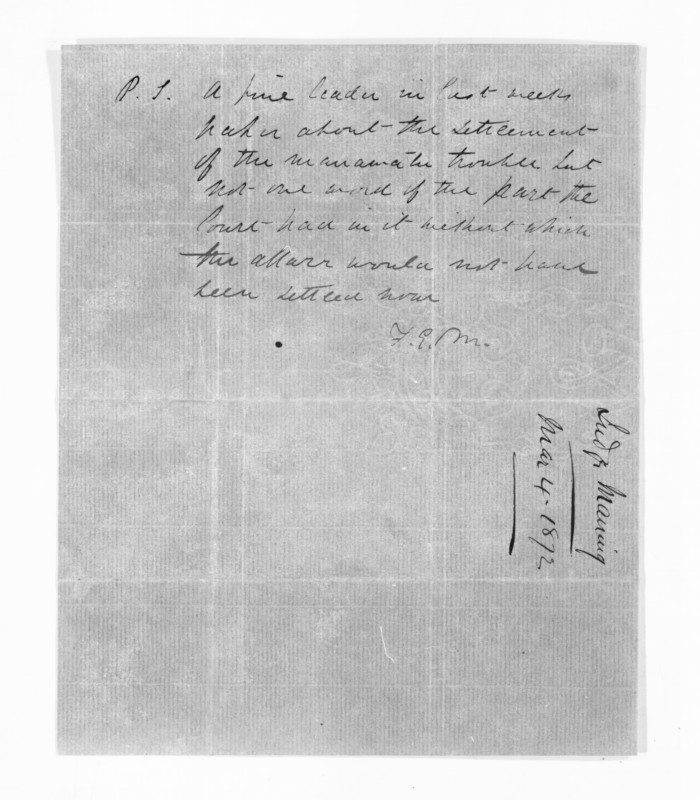 P. S. A fine leader in last weeks
paper about the settlement
of the manawatu trouble but
not one word of the part the
Court had in it without which
the affair would not have
been settled now
F. E. M.
Judge Maning
Mar 4. 1872